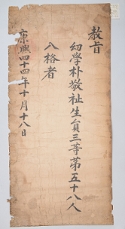 敎旨
幼學朴敬祉生員三等第五十八人
入格者
康熙四十四年十月十八日